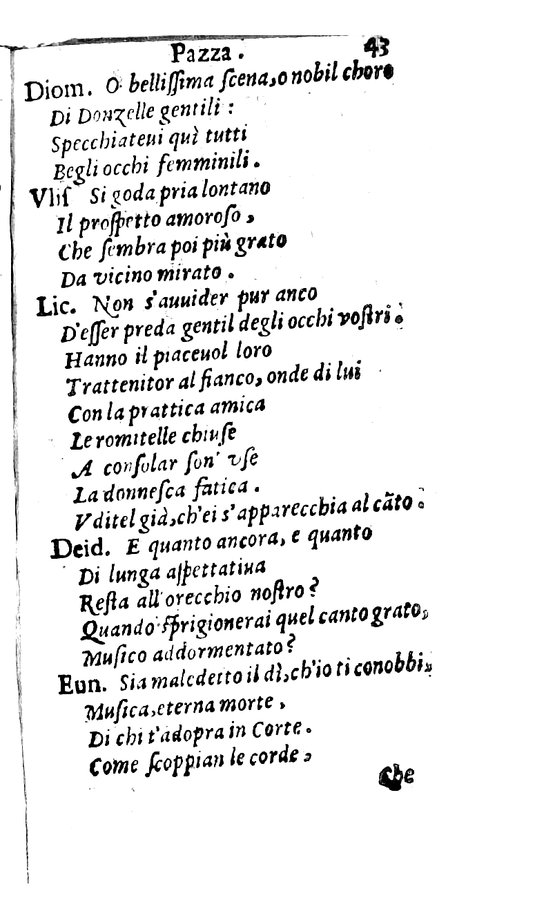 Pazza. 43
Diom. O bellissima scena, o nobil choro
Di Donzelle gentili:
Specchiateui quì tutti
Begli occhi femminili.
Vlis Si goda pria lontano
Il prospetto amoroso,
Che sembra poi più grato
Da vicino mirato.
Lic. Non s'auuider pur anco
D'esser preda gentil degli occhi vostri.
Hanno il piaceuol loro
Trattenitor al fianco, onde di lui
Con la prattica amica
Le romitelle chiuse
A consolar son' vse
La donnesca fatica.
Vditel già, ch'ei s'apparecchia al cãto.
Deid. E quanto ancora, e quanto
Di lunga aspettatiua
Resta all'orecchio nostro?
Quando sprigionerai quel canto grato,
Musico addormentato?
Eun. Sia maledetto il dì, ch'io ti conobbi,
Musica, eterna morte,
Di chi t'adopra in Corte.
Come scoppian le corde,
Che